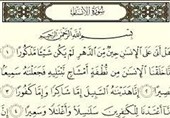 سورة الإنسان
بسم الله الرحمن الرحيم
هل أتى على الإنسن حين من الدهر لم يكن شيئا مذكورا ١
إنا خلقنا الإنسن من نطفة أمشاج نبتليه فجعلنه سميعا
بصيرا ٢ إنا هدينه السبيل إما شاكرا وإما كفورا ٣
إنا أعتدنا للكفرين سلسلا وأغللا وسعيرا ٤